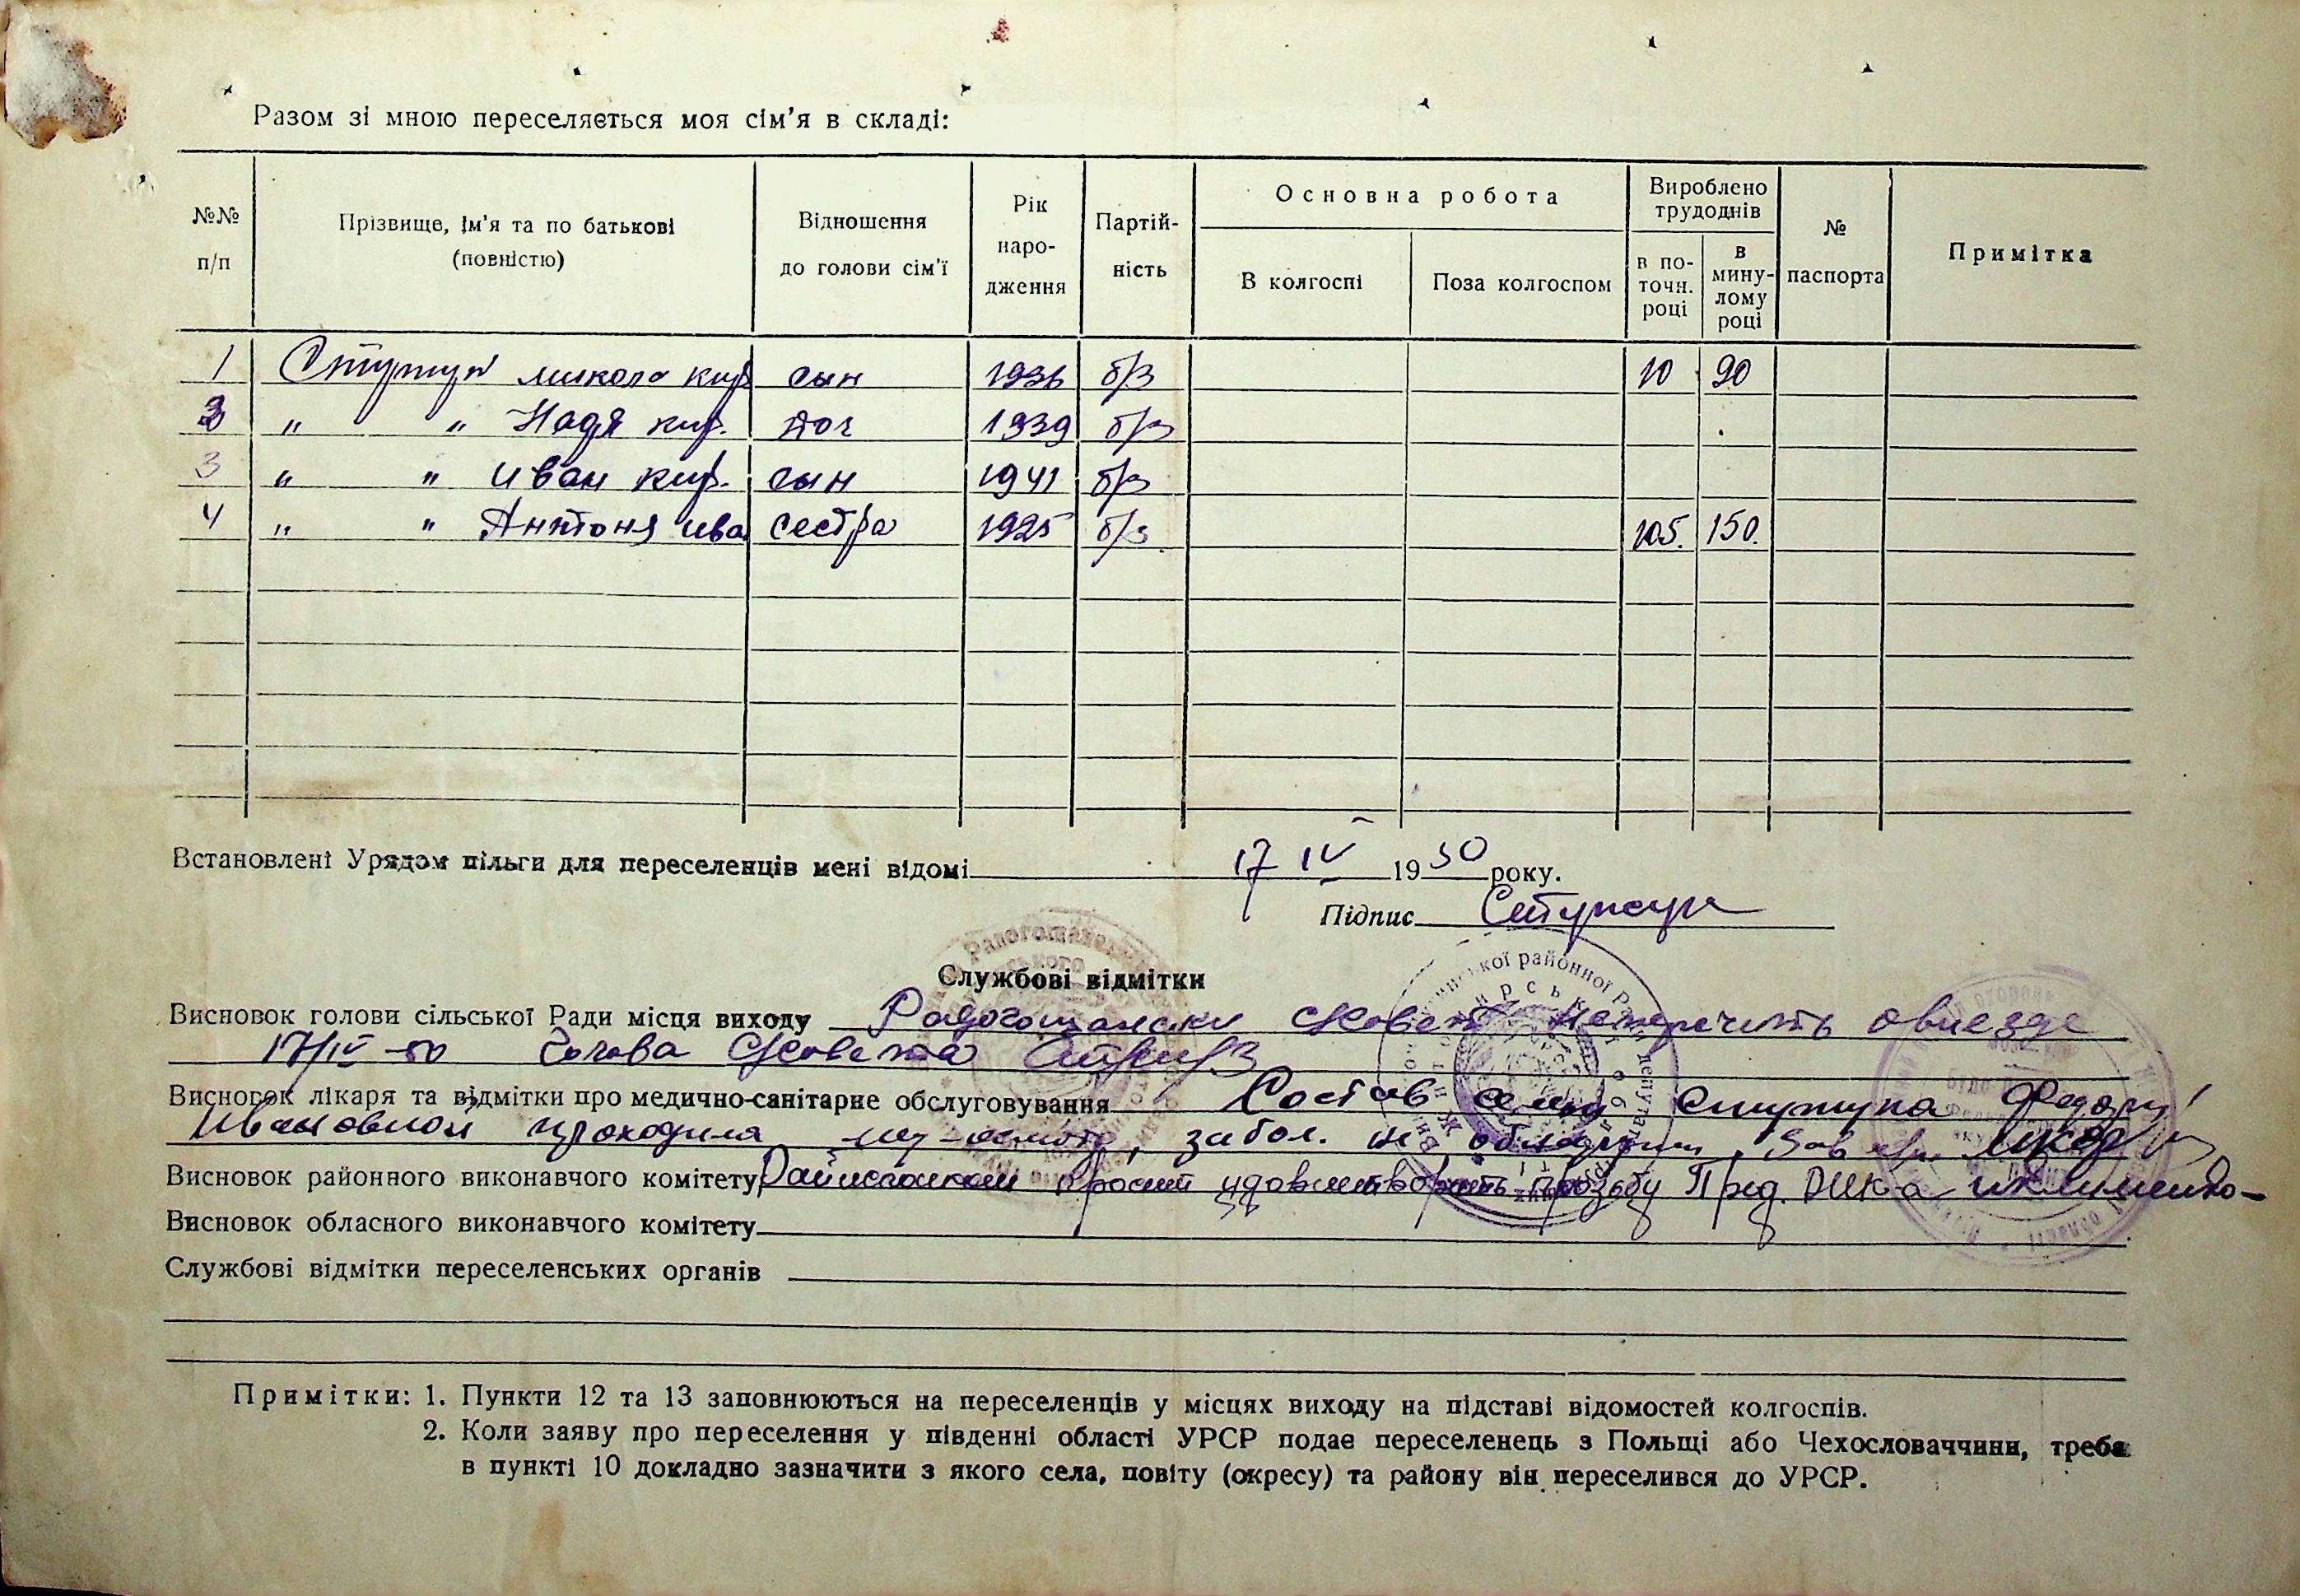 Разом зі мною переселяється моя сім'я в складі:
№№ п/п Прізвище, ім'я та по батькові (повністю) Відношення до голови сім'ї Рік народження Партійність Основна робота Вироблено трудоднів № паспорта Примітка
В колгоспі Поза колгоспом в поточн. році в минулому році
1 микола кир сын 1936 б/з 10 90
2 " " Надя кир. доч 1939 б/з
3 " " Иван кир. сын 1941 б/з
4 " " Антоня ива сестра 1925 б/з 105. 150.
Встановлені Урядом пільги для переселенців мені відомі 17 IV 1950 року.
Підпис
Службові відмітки
Висновок голови сільської Ради місця виходу
17/IV-50 Голова
Висновок лікаря та відмітки про медично-санітарне обслуговування Состав семьи
Ивановной проходила забол. не
Висновок районного виконавчого комітету просит удовлетворить просьбу Пред.
Висновок обласного виконавчого комітету
Службові відмітки переселенських органів
Примітки: 1. Пункти 12 та 13 заповнюються на переселенців у місцях виходу на підставі відомостей колгоспів.
2. Коли заяву про переселення у південні області УРСР подає переселенець з Польщі або Чехословаччини, треба
в пункті 10 докладно зазначити з якого села, повіту (окресу) та району він переселився до УРСР.